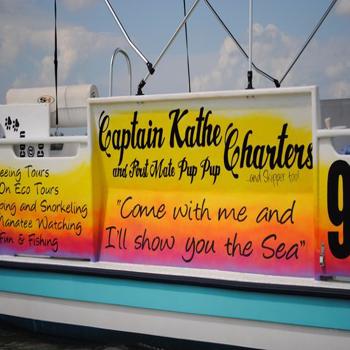 Captain Kathe
Charters
and First Mate Pup Pup
...and Skipper too!
"Come with me and
I'll show you the Sea"
eeing Tours
On Eco Tours
ping and Snorkeling
Manatee Watching
Fun & Fishing
9